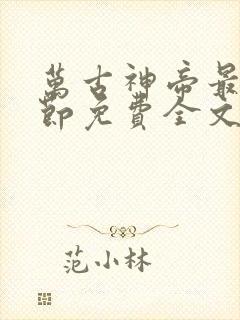 萬古神帝最
節免費全文
范小林